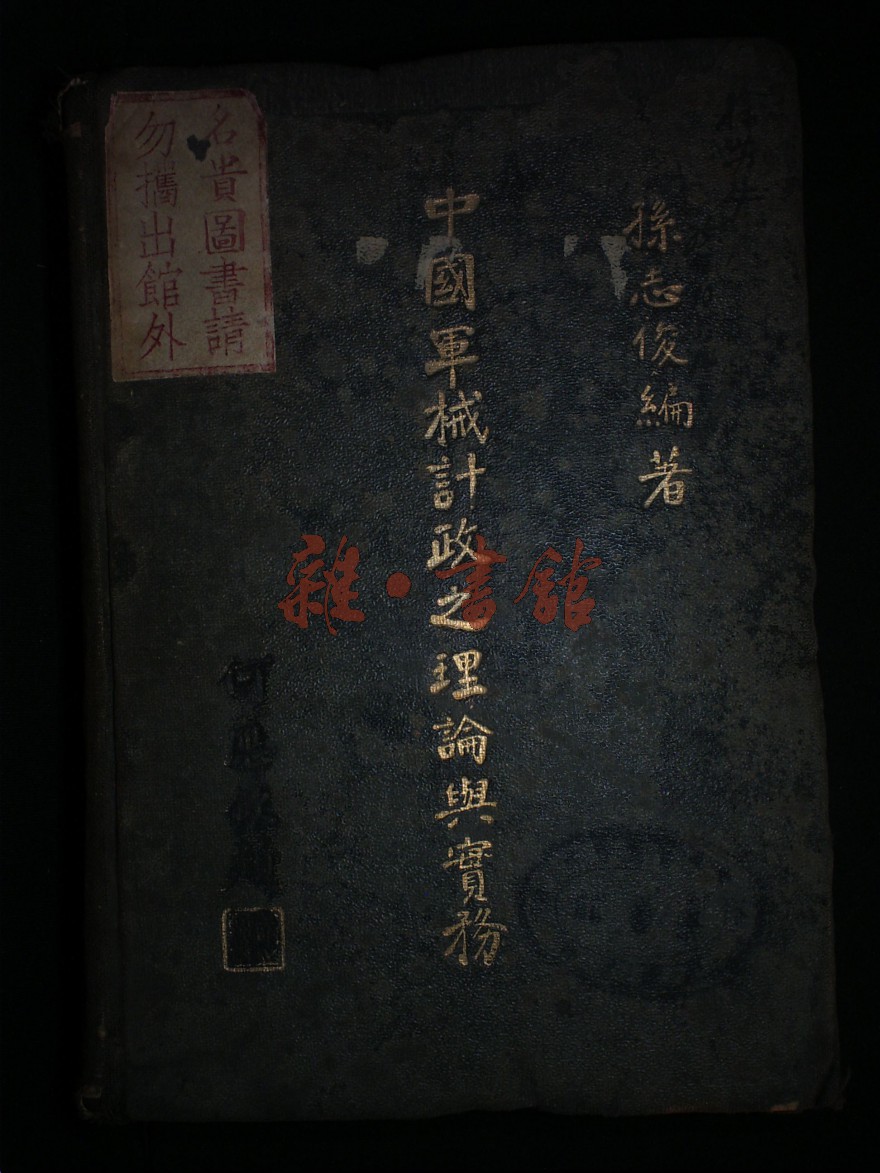 孫志俊編著
中國軍械計政之理論與實務
名貴圖書請
勿攜出館外
雜·書館